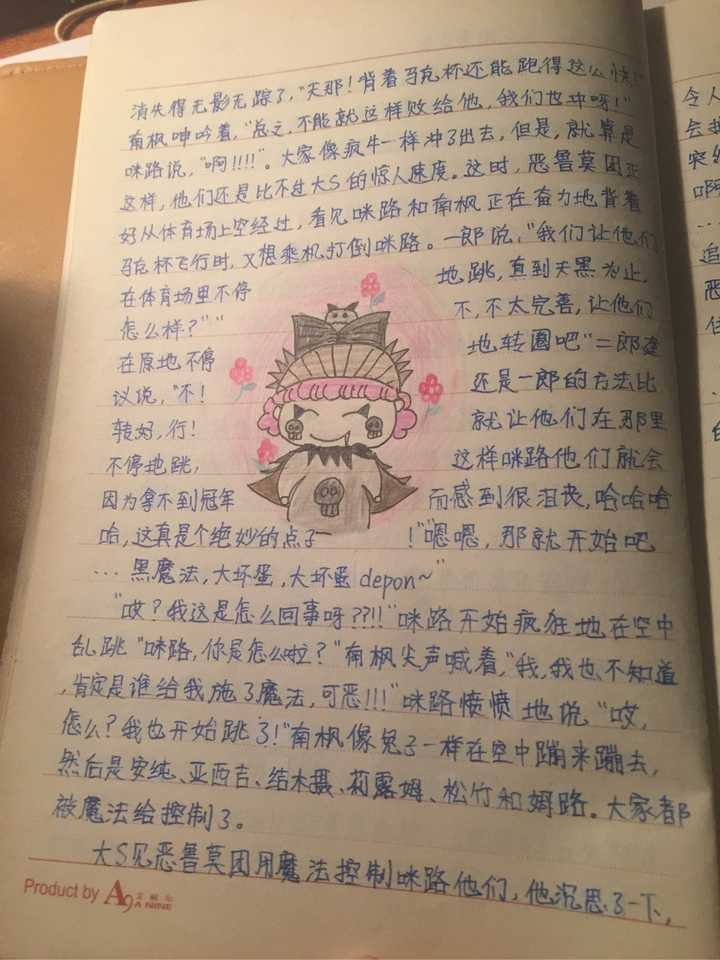 消失得无影无踪了，"天那！背着马克杯还能跑得这么快！"
南枫呻吟着，"总之，不能就这样败给他，我们也冲呀！"
咪路说，"啊!!!!"。大家像疯牛一样冲了出去，但是，就算是
这样，他们还是比不过大S的惊人速度。这时，恶鲁莫团正
好从体育场上空经过，看见咪路和南枫正在奋力地背着
马克杯飞行时，又想乘机打倒咪路。一郎说，"我们让他们
在体育场里不停地跳，直到天黑为止，
怎么样？""不，不太完善，让他们
在原地不停地转圈吧"二郎建
议说，"不！还是一郎的方法比
较好，行！就让他们在那里
不停地跳，这样咪路他们就会
因为拿不到冠军而感到很沮丧，哈哈哈
哈，这真是个绝妙的点子！""嗯嗯，那就开始吧
…黑魔法，大坏蛋，大坏蛋depon~"
"哎？我这是怎么回事呀??!!"咪路开始疯狂地在空中
乱跳"咪路，你是怎么啦？"南枫尖声喊着，"我，我也不知道
，肯定是谁给我施了魔法，可恶!!!"咪路愤愤地说"哎，
怎么？我也开始跳了！"南枫像兔子一样在空中蹦来蹦去，
然后是安纯、亚西吉、结木摄、莉露姆、松竹和姆路。大家都
被魔法给控制了。
大S见恶鲁莫团用魔法控制咪路他们，他沉思了一下，
Product by A9 艾耐尔 A NINE
令人
会
突然
啊
…
追
恶
住